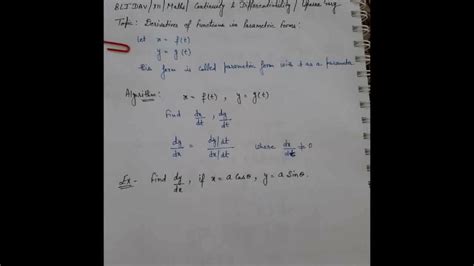 BLJ DAV / XII / Maths / Continuity & Differentiability /
Topic: Derivatives of Functions in Parametric Forms:
Let x = f(t)
y = g(t)
this form is called parametric form with t as a parameter
Algorithm: x = f(t) , y = g(t)
Find dx/dt , dy/dt
dy/dx = dy/dt / dx/dt where dx/dt ≠ 0
Ex - Find dy/dx , if x = a Cosθ, y = a Sinθ.